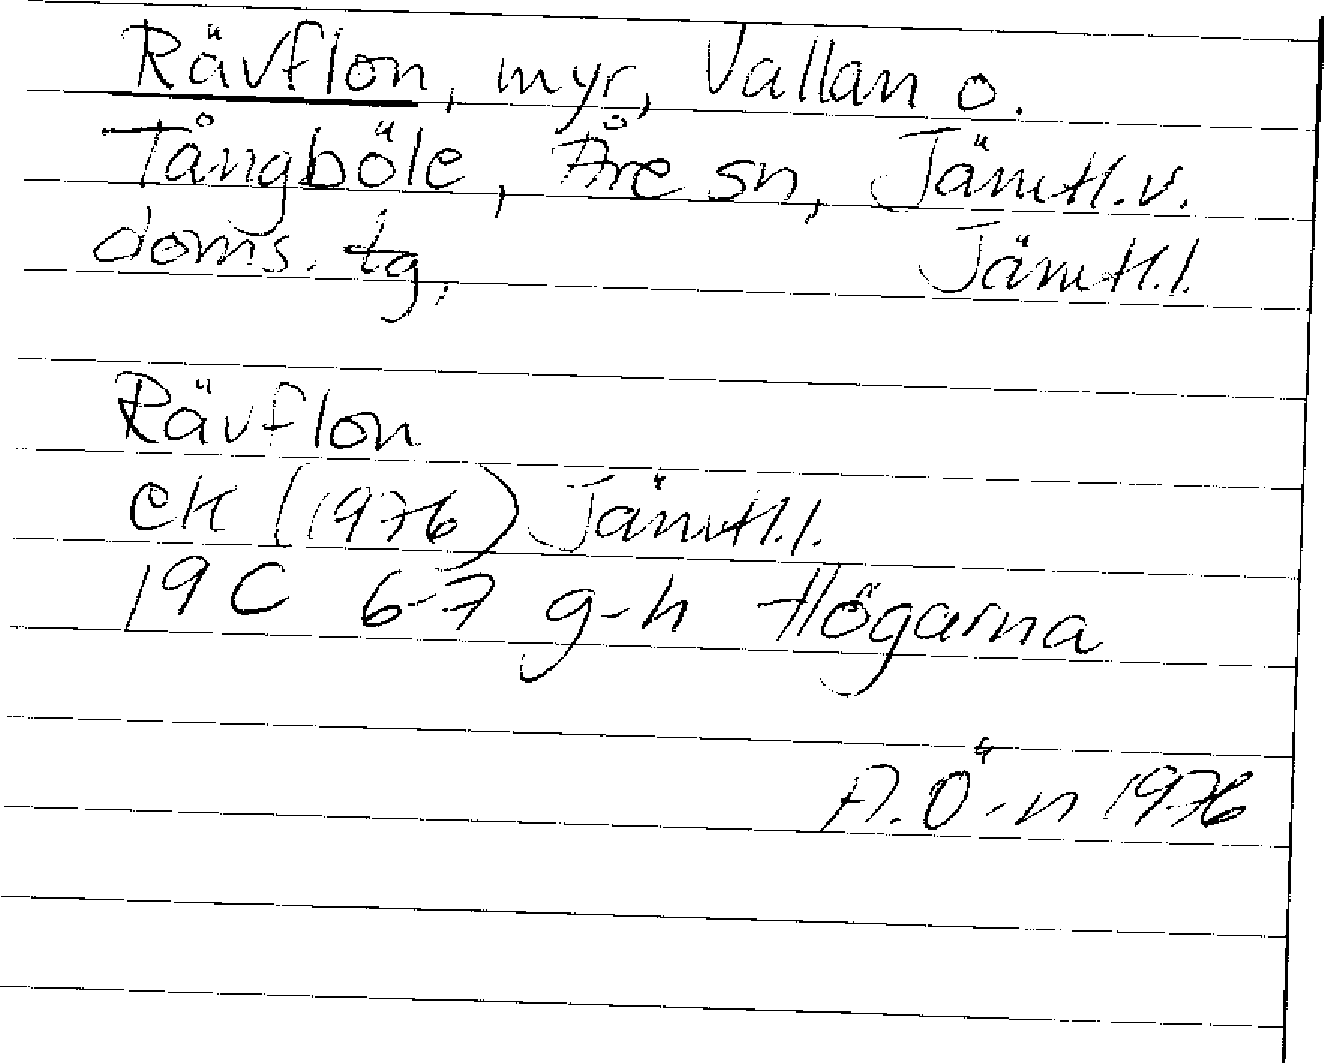 Rävflon, myr, Vallan o.
Tångböle, Åre sn, Jämtl.v.
doms. tg, Jämtl.l.
Rävflon
ek (1976) Jämtl.l.
19 C 6-7 g-h Högarna
A.Ö-n 1976